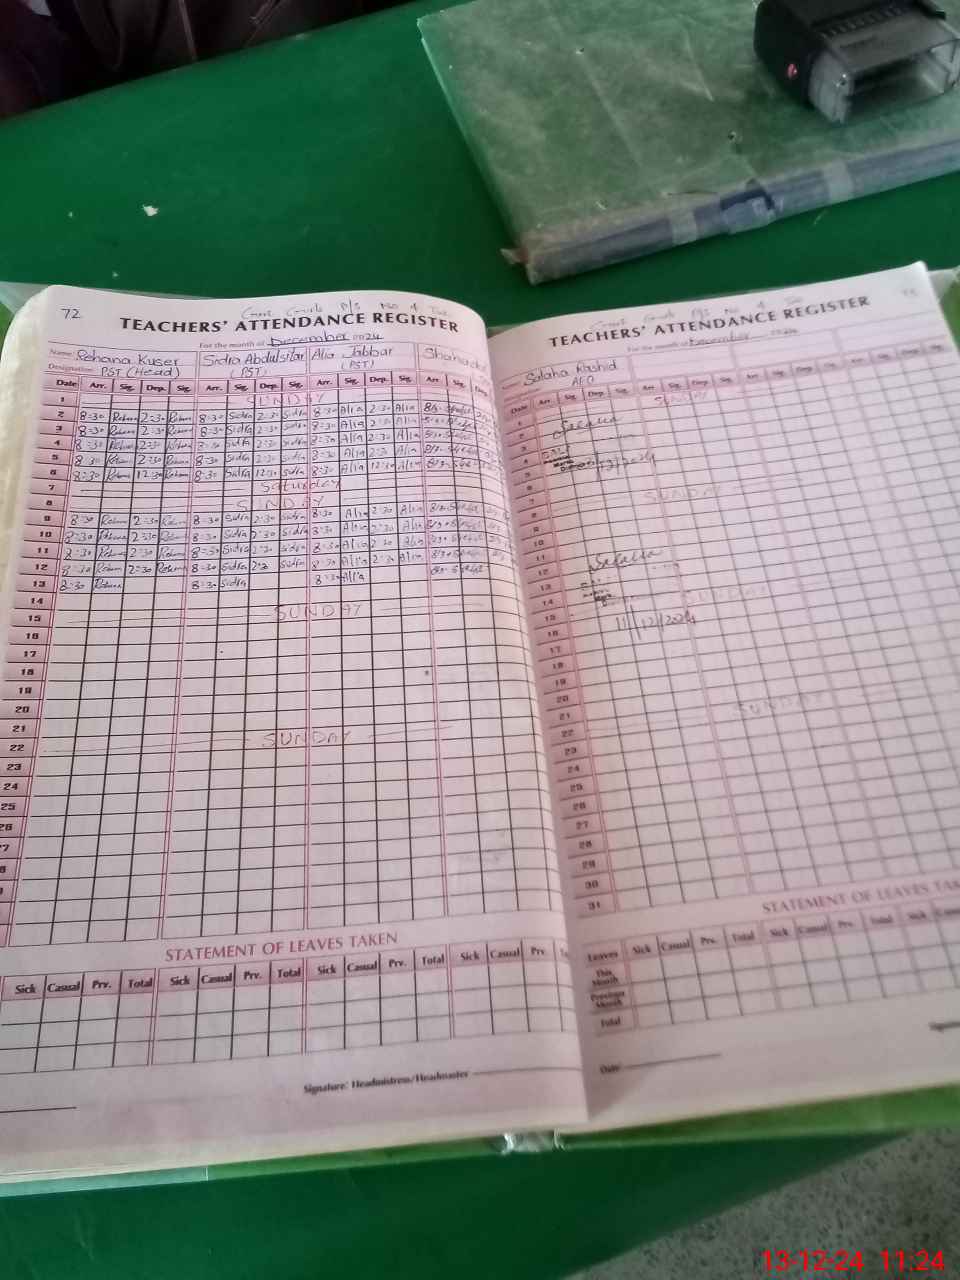 72
TEACHERS' ATTENDANCE REGISTER
For the month of December 2024
Name Rehana Kuser Sidra Abdulsitar Alia Jabbar
Designation PST (Head) (PST) (PST)
Date Arr. Sig. Dep. Sig. Arr. Sig. Dep. Sig. Arr. Sig. Dep. Sig. Arr Sig. Dep.
1 SUNDAY
2 8:30 Rehana 2:30 Rehana 8:30 Sidra 2:30 Sidra 8:30 Alia 2:30 Alia
3 8:30 Rehana 2:30 Rehana 8:30 Sidra 2:30 Sidra 8:30 Alia 2:30 Alia
4 8:30 Rehana 2:30 Rehana 8:30 Sidra 2:30 Sidra 8:30 Alia 2:30 Alia
5 8:30 Rehana 2:30 Rehana 8:30 Sidra 2:30 Sidra 8:30 Alia 2:30 Alia
6 8:30 Rehana 12:30 Rehana 8:30 Sidra 12:30 Sidra 8:30 Alia 12:30 Alia
7 Saturday
8 SUNDAY
9 8:30 Rehana 2:30 Rehana 8:30 Sidra 2:30 Sidra 8:30 Alia 2:30 Alia
10 8:30 Rehana 2:30 Rehana 8:30 Sidra 2:30 Sidra 8:30 Alia 2:30 Alia
11 Rehana 2:30 Rehana 8:30 Sidra 2:30 Sidra 8:30 Alia 2:30 Alia
12 8:30 Rehana 2:30 Rehana 8:30 Sidra 2:30 Sidra 8:30 Alia 2:30 Alia
13 8:30 Rehana 8:30 Sidra 8:30 Alia
14
15 SUNDAY
16
17
18
19
20
21
22 SUNDAY
23
24
25
26
STATEMENT OF LEAVES TAKEN
Sick Casual Prv. Total Sick Casual Prv. Total Sick Casual Prv. Total Sick Casual Prv.
Signature: Headmistress/Headmaster
TEACHERS' ATTENDANCE REGISTER
For the month of December 2024
Name Salaha Rashid
Date Arr. Sig. Dep. Sig. Arr Sig. Dep. Sig. Arr. Sig. Dep. Sig. Arr. Sig. Dep. Sig.
1 SUNDAY
2
3
4
5
6
7
8 SUNDAY
9
10
11
12
13
14
15 SUNDAY
16 11/12/2024
17
18
19
20
21
22 SUNDAY
23
24
25
26
27
28
29
30
31
STATEMENT OF LEAVES
Leaves Sick Casual Prv. Total Sick Casual Prv. Total Sick
This Month
Previous Month
Total
Date
13-12-24 11:24